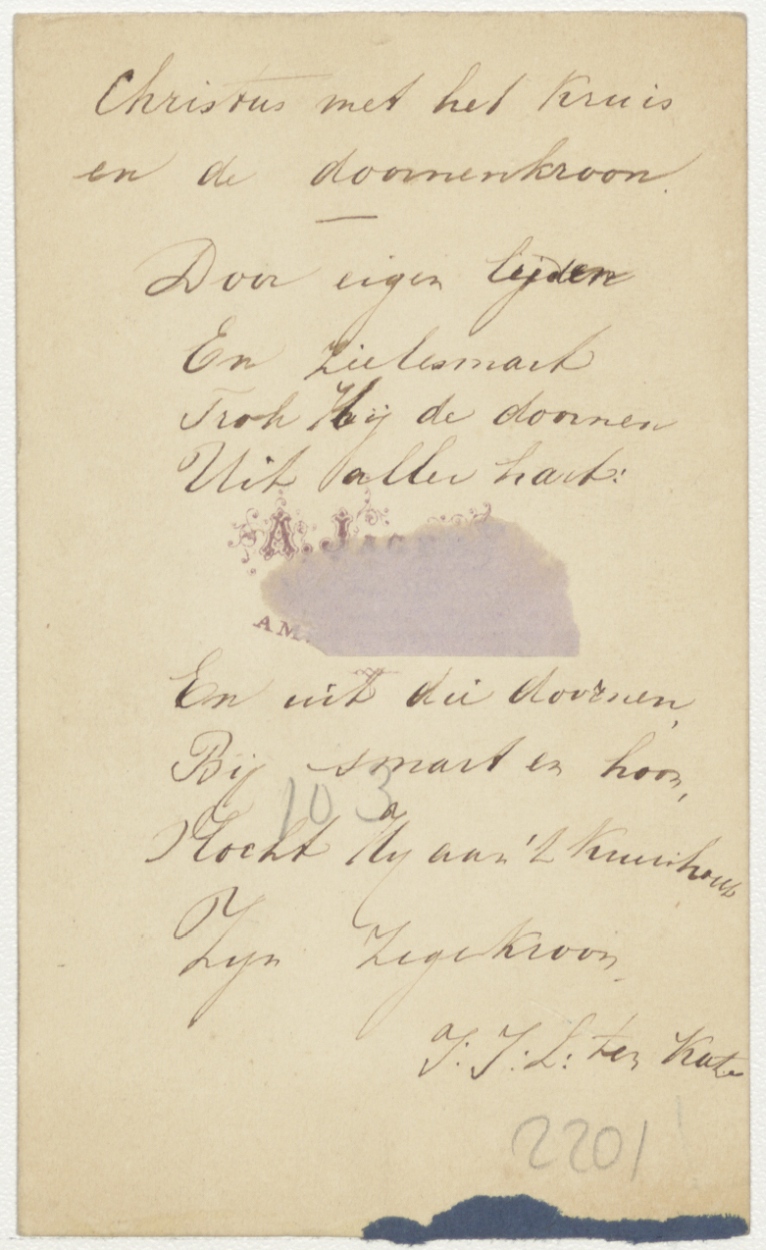 Christus met het Kruis
en de doornenkroon.
Door eigen lijden
En zielesmart
Trok Hij de doornen
Uit aller hart:
A. JAGER
AM
En uit die doornen,
Bij smart en hoon,
103
Vlocht Hij aan 't Kruishout
Zijn Zegekroon.
J. J. L: ten Kate
2201